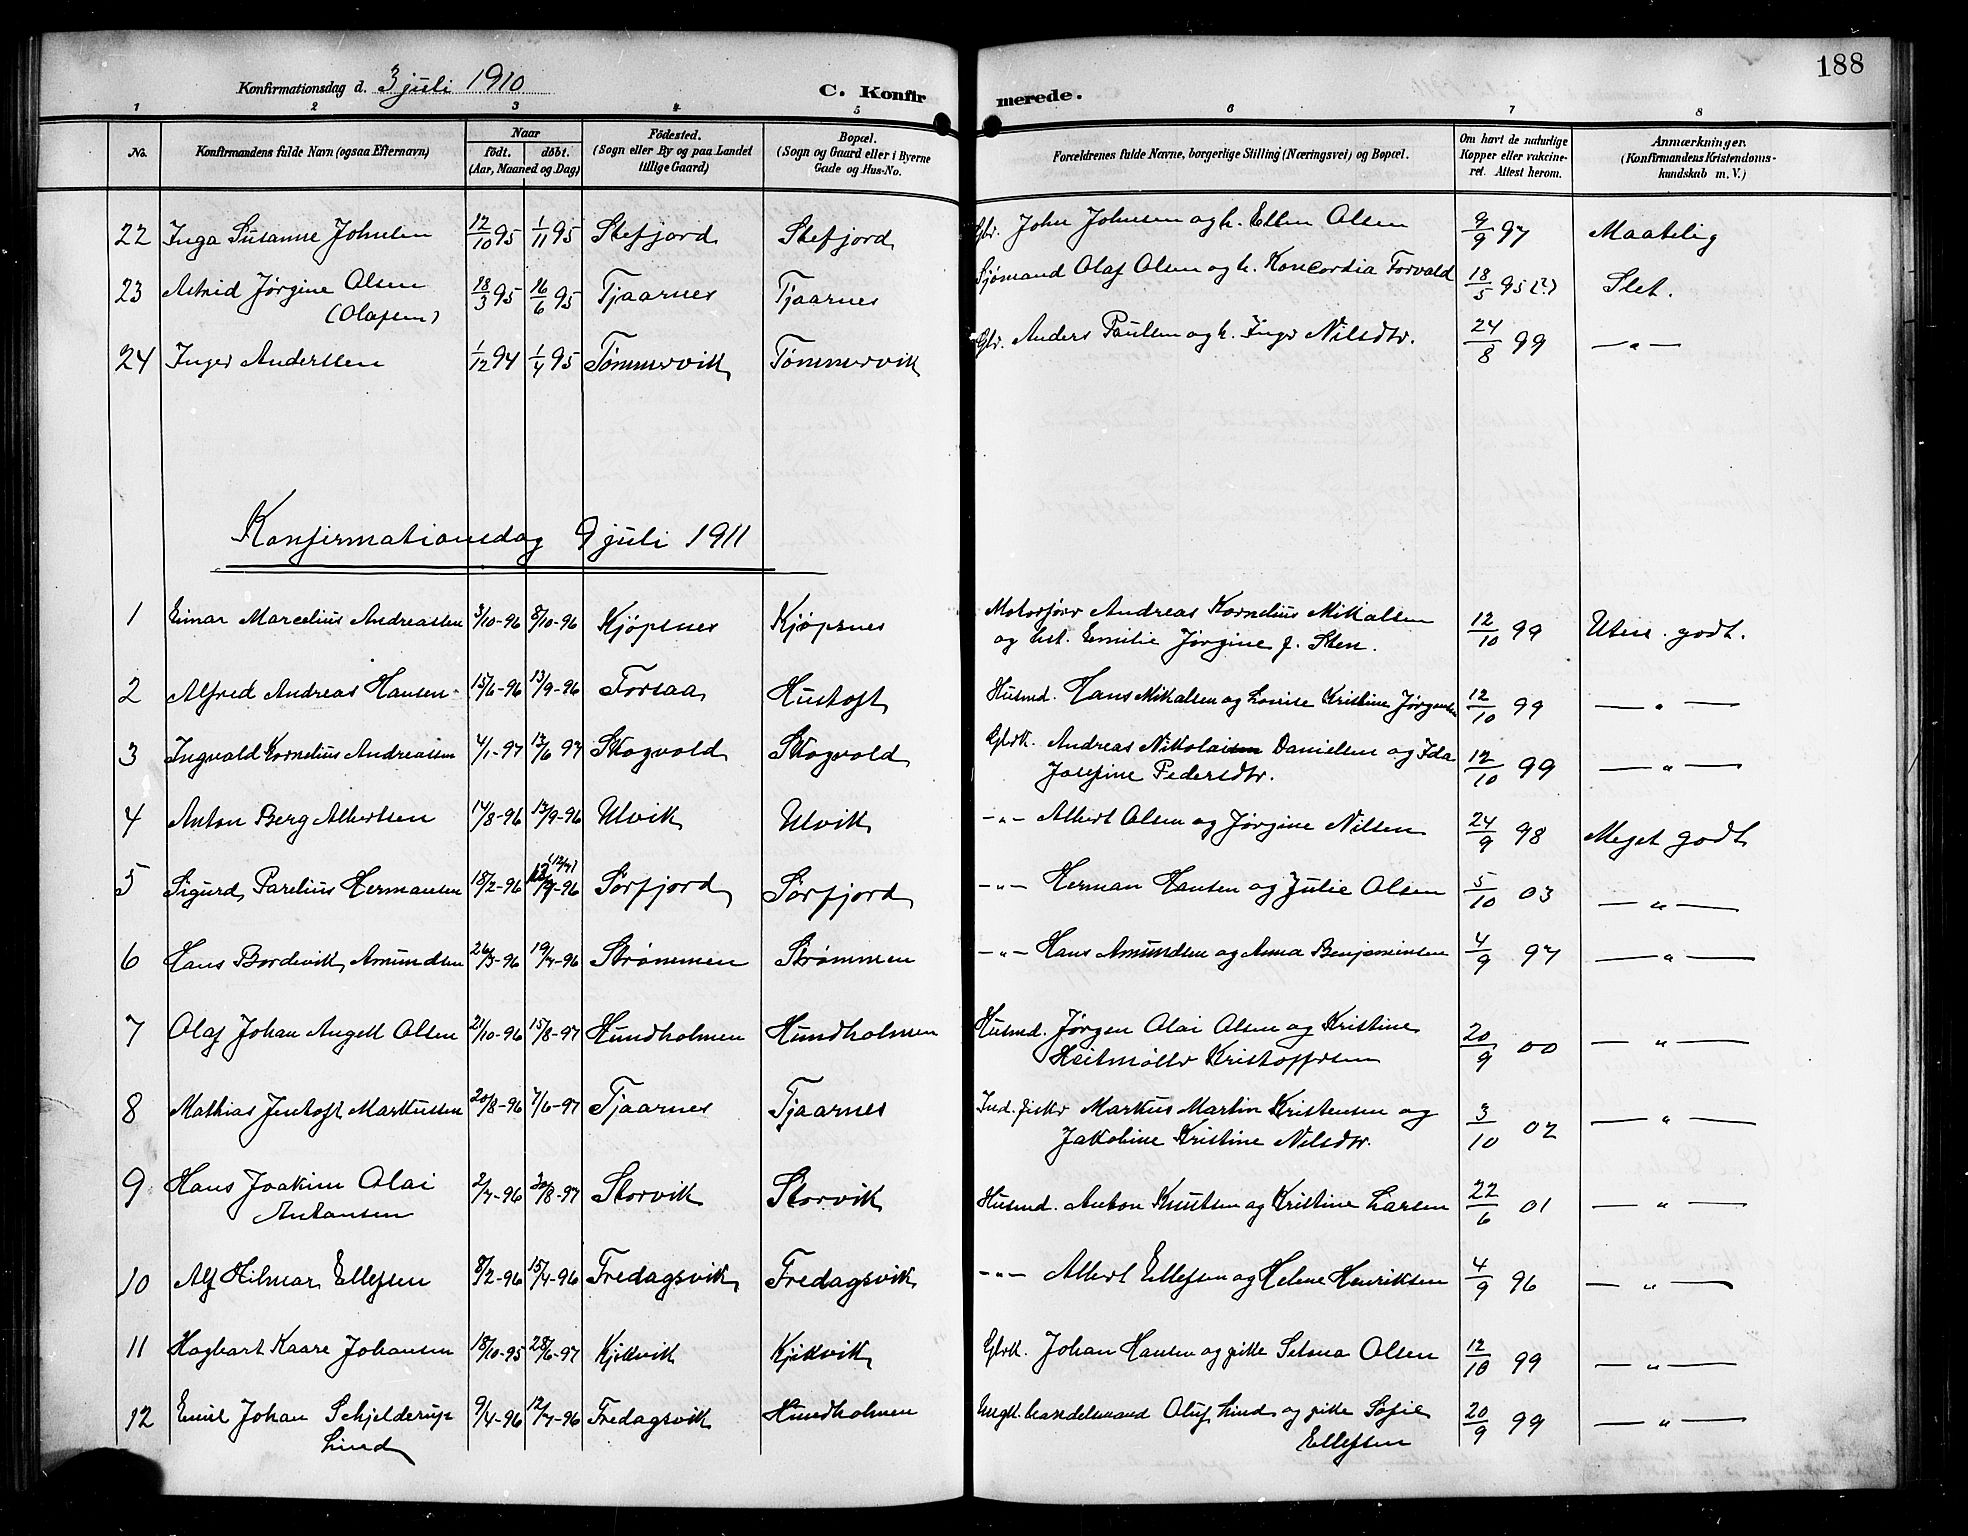 188
Konfirmationsdag d. 3 juli 1910
C. Konfirmerede.
1 2 3 4 5 6 7 8
No. | Konfirmandens fulde Navn (ogsaa Efternavn) | Naar født. døbt. (Aar, Maaned og Dag) | Fødested. (Sogn eller By og paa Landet tillige Gaard) | Bopæl. (Sogn og Gaard eller i Byerne Gade og Hus-No. | Forældrenes fulde Navne, borgerlige Stilling (Næringsvei) og Bopæl. | Om havt de naturlige Kopper eller vakcineret. Attest herom. | Anmærkninger. (Konfirmandens Kristendomskundskab m. V.)
22 Inga Susanne Johnsen 12/10 95 1/11 95 Stefjord Stefjord Gbr. John Johnsen og h. Ellen Olsen 9/9 97 Maatelig
23 Astrid Jørgine Olsen 18/3 95 16/6 95 Tjaarnes Tjaarnes Sjømand Olaf Olsen og h. Koncordia Torvald 18/5 95 (?) Slet.
(Olafsen)
24 Inger Anderssen 1/12 94 1/4 95 Tømmervik Tømmervik Gbr. Anders Paulsen og h. Inger Nilsdtr. 24/8 99 — " —
Konfirmationsdag 9 juli 1911
1 Einar Marcelius Andreassen 3/10-96 8/10-96 Kjøpsnes Kjøpsnes Motorfører Andreas Kornelius Mikalsen
og hst. Emilie Jørgine f. Sten. 12/10 99 Utm. godt.
2 Alfred Andreas Hansen 15/6-96 13/9-96 Forsaa Hustoft Husmd. Hans Mikalsen og Lovise Kristine Jørgensen 12/10 99 — " —
3 Ingvald Kornelius Andreassen 4/1-97 17/6 97 Skogvold Skogvold Gbrk. Andreas Nikolaisen Danielsen og Ida
Josefine Pedersdtr. 12/10 99 — " —
4 Anton Berg Albertsen 14/8-96 13/9-96 Ulvik Ulvik — " — Albert Olsen og Jørgine Nilsen 24/9 98 Meget godt
5 Sigurd Parelius Hermansen 18/2-96 (12/7) -96 Sørfjord Sørfjord — " — Herman Hansen og Julie Olsen 5/10 03 — " —
6 Hans Bordevik Amundsen 26/3-96 19/7-96 Strømmen Strømmen — " — Hans Amundsen og Anna Benjaminsen 4/9 97 — " —
7 Olaf Johan Angell Olsen 21/10-96 15/8-97 Hundholmen Hundholmen Husmd. Jørgen Olai Olsen og Kristine
Heitmøller Kristoffersen 20/9 00 — " —
8 Mathias Jentoft Markussen 20/8-96 7/6-97 Tjaarnes Tjaarnes Ind. fisker Markus Martin Kristensen og
Jakobine Kristine Nilsdtr. 3/10 02 — " —
9 Hans Joakim Olai
Antonsen 2/7-96 30/8-97 Storvik Storvik Husmd. Anton Knutsen og Kristine Larsen 22/6 01 — " —
10 Alf Hilmar Ellefsen 8/2-96 15/4-96 Fredagsvik Fredagsvik — " — Albert Ellefsen og Helene Henriksen 4/9 96 — " —
11 Hagbart Kaare Johansen 18/10-95 28/6-97 Kjikvik Kjikvik Gbrk. Johan Hansen og pike Setona Olsen 12/10 99 — " —
12 Emil Johan Schjelderup
Lind 9/4-96 12/7-96 Fredagsvik Hundholmen Ungk. handelsmand Oluf Lind og pike Sofie
Ellefsen 20/9 99 — " —